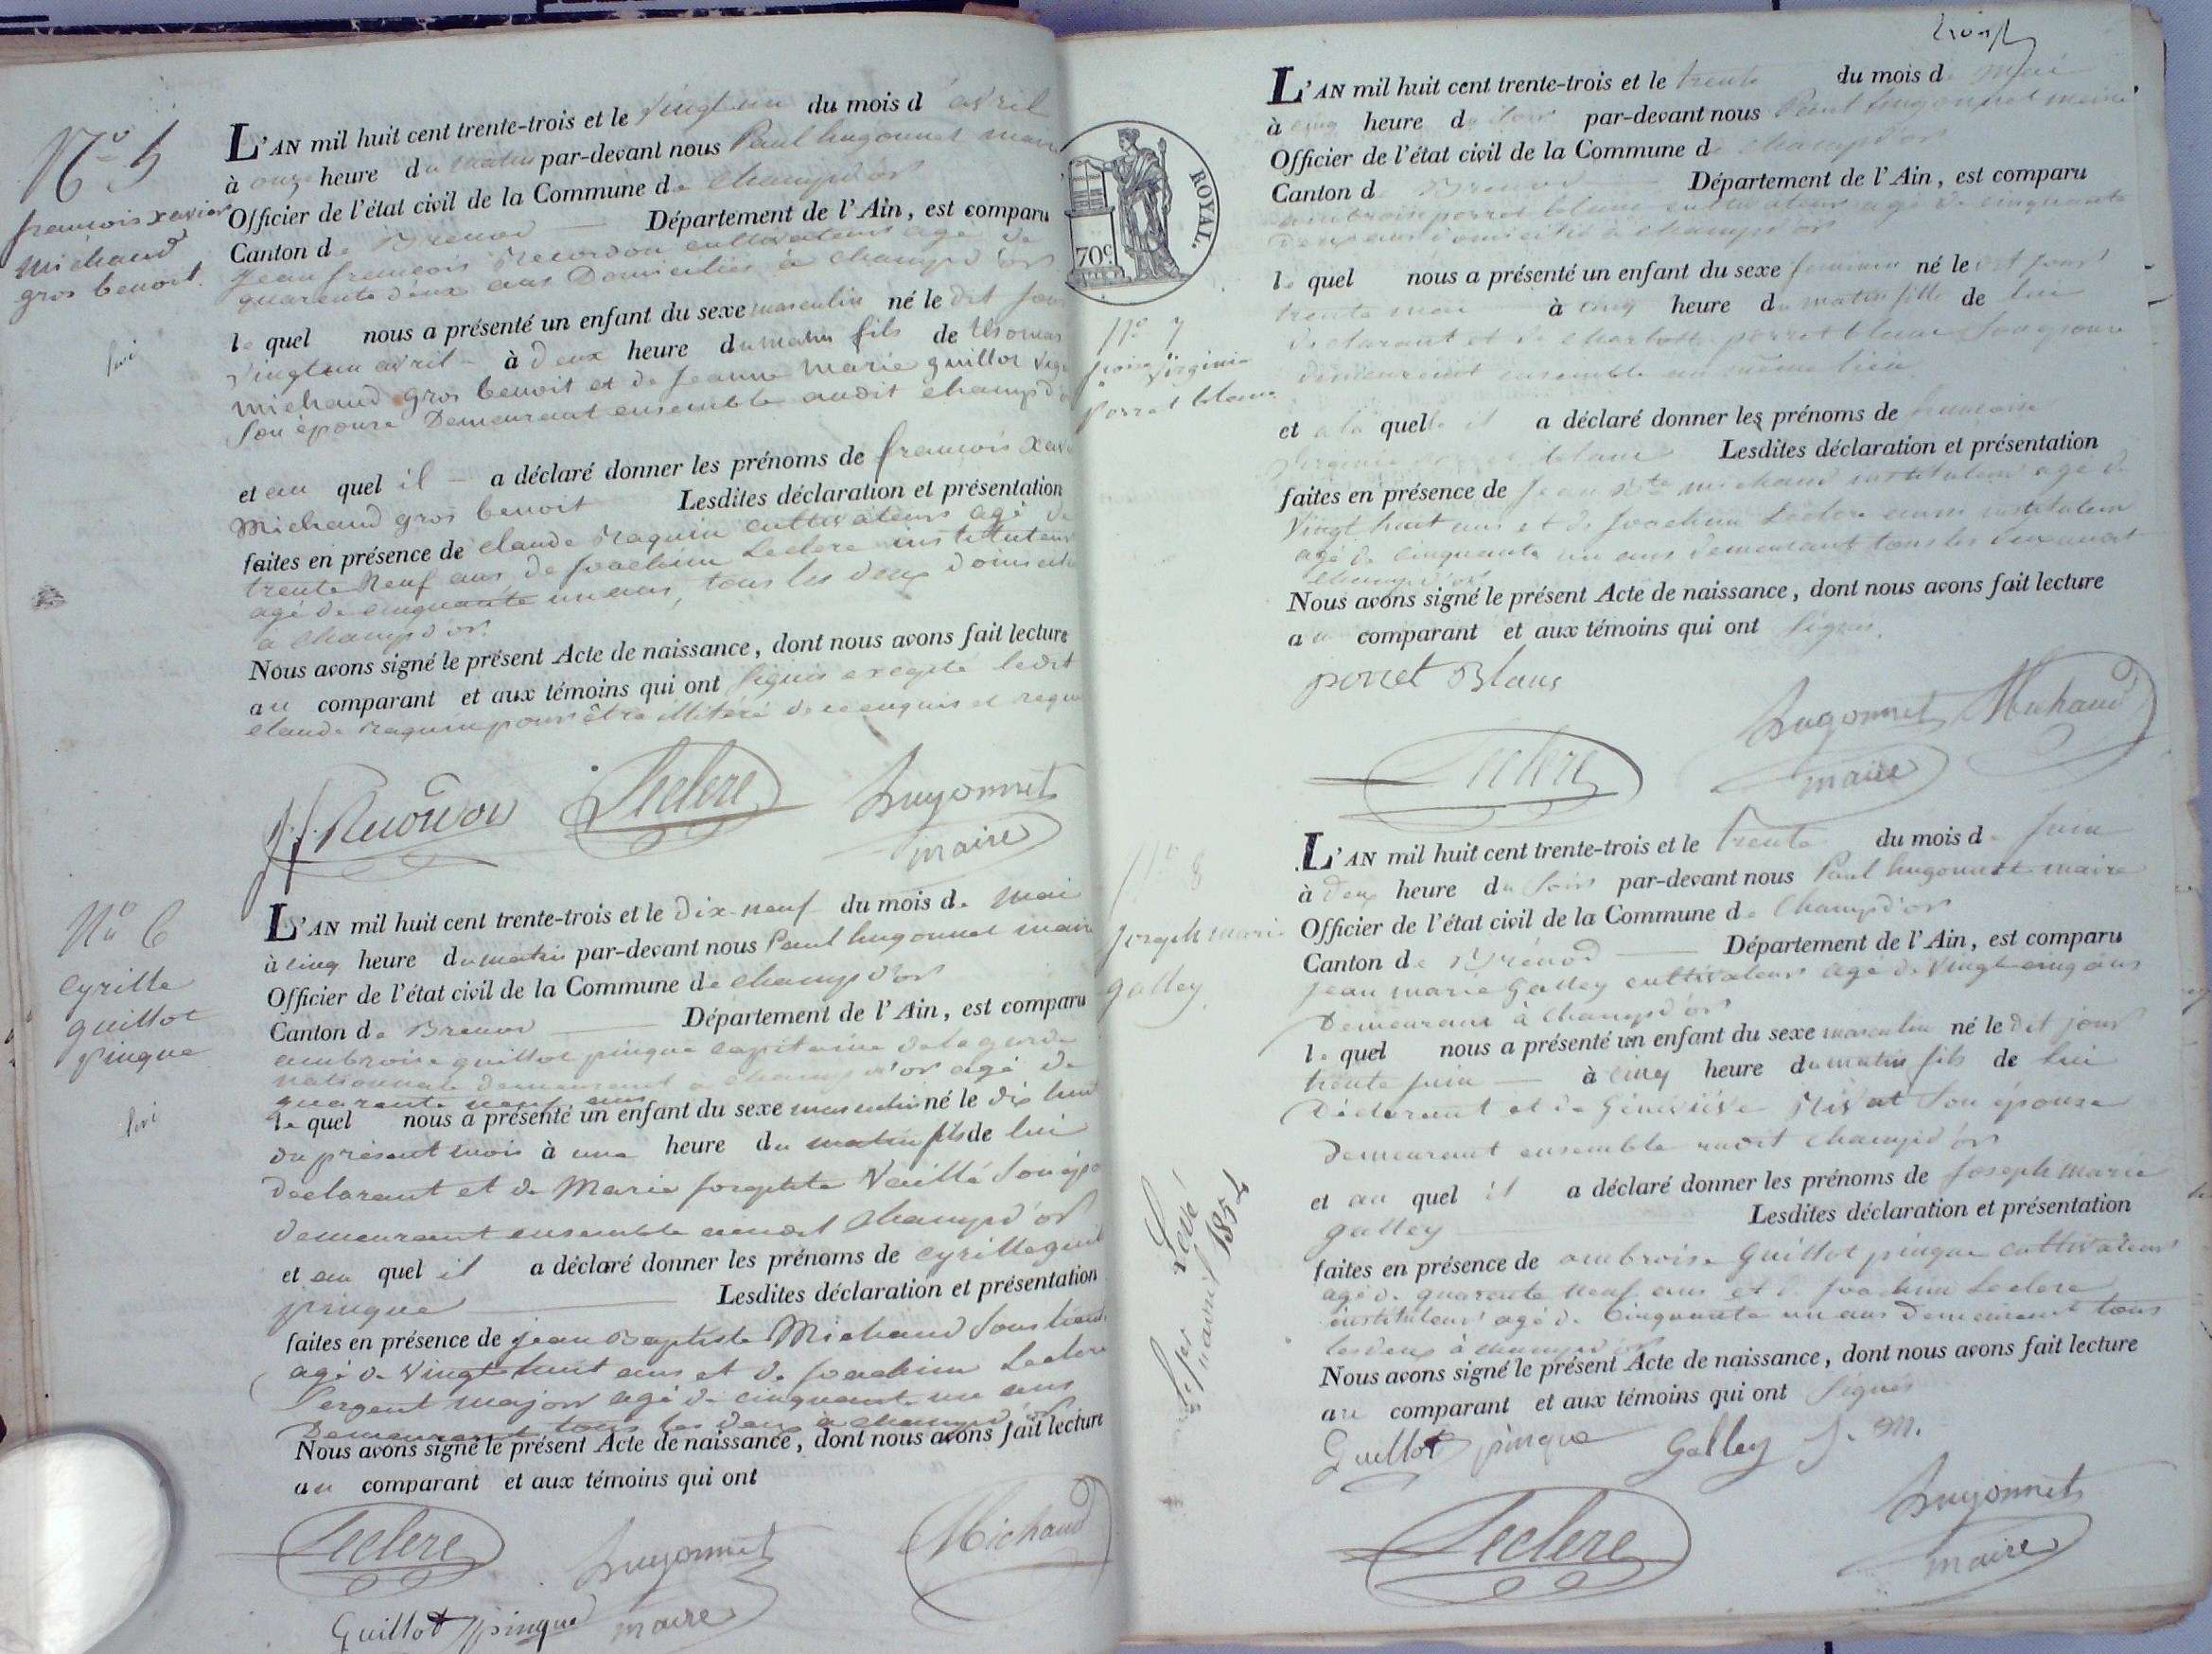 N° 5
francois xavier
michaud
gros benoit.
L'AN mil huit cent trente-trois et le vingt un du mois d'avril
à onze heure du matin par-devant nous Paul hugonnet maire
Officier de l'état civil de la Commune de Champd'or
Canton de Brenod — Département de l'Ain, est comparu
Jean francois Recordon cultivateur agé de
quarante deux ans Domicilié à Champd'or
le quel nous a présenté un enfant du sexe masculin né le dit jour
vingt un avril - à deux heure du matin fils de thomas
michaud gros benoit et de Jeanne Marie guillot
Son épouse Demeurant ensemble audit champd'or
et au quel il - a déclaré donner les prénoms de francois xavier
Michaud gros benoit Lesdites déclaration et présentation
faites en présence de claude Raquin cultivateur agé de
trente Neuf ans, de Joachim Leclerc instituteur
agé de cinquante un ans, tous les deux domiciliés
à champd'or.
Nous avons signé le présent Acte de naissance, dont nous avons fait lecture
au comparant et aux témoins qui ont signés excepté ledit
claude Raquin pour être illitéré de ce enquis et requis
Leclerc
hugonnet
maire
N° 6
Cyrille
guillot
pingue
L'AN mil huit cent trente-trois et le dix-neuf du mois de mai
à cinq heure du matin par-devant nous Paul hugonnet maire
Officier de l'état civil de la Commune de champd'or
Canton de Brenod — Département de l'Ain, est comparu
ambroise guillot pingue capitaine de la garde
nationale demeurant à champd'or agé de
quarante neuf ans
le quel nous a présenté un enfant du sexe masculin né le dix huit
du présent mois à une heure du matin fils de lui
déclarant et de Marie Josephte
demeurant ensemble audit champd'or
et au quel il a déclaré donner les prénoms de cyrille guillot
pingue — Lesdites déclaration et présentation
faites en présence de jean Baptiste Michaud Sous lieute
agé de vingt huit ans et de Joachim Leclerc
Sergent major agé de cinquante un ans
Demeurant tous les deux à champd'or
Nous avons signé le présent Acte de naissance, dont nous avons fait lecture
au comparant et aux témoins qui ont
Leclerc
hugonnet
Michaud
Guillot pingue
maire
ROYAL.
70c
N° 7
Virginie
porret blanc
L'AN mil huit cent trente-trois et le trente du mois de mai
à cinq heure du soir par-devant nous Paul hugonnet maire
Officier de l'état civil de la Commune de champd'or
Canton de Brenod — Département de l'Ain, est comparu
ambroise porret blanc cultivateur agé de cinquante
deux ans domicilié à champd'or
le quel nous a présenté un enfant du sexe feminin né le dit jour
trente mai à cinq heure du matin fille de lui
déclarant et de charlotte porret blanc Son épouse
demeurant ensemble au même lieu
et a la quelle il a déclaré donner les prénoms de francoise
Virginie porret blanc Lesdites déclaration et présentation
faites en présence de Jean Bte michaud instituteur agé de
Vingt huit ans et de Joachim Leclerc aussi instituteur
agé de cinquante un ans demeurant tous les deux audit
champd'or
Nous avons signé le présent Acte de naissance, dont nous avons fait lecture
au comparant et aux témoins qui ont Signés.
porret Blanc
hugonnet
Michaud
Leclerc
maire
N° 8
joseph marie
galley
L'AN mil huit cent trente-trois et le trente du mois de Juin
à deux heure du soir par-devant nous Paul hugonnet maire
Officier de l'état civil de la Commune de Champd'or
Canton de Brénod — Département de l'Ain, est comparu
jean marie Galley cultivateur agé de Vingt cinq ans
Demeurant à Champd'or
le quel nous a présenté un enfant du sexe masculin né le dit jour
trente juin — à cinq heure du matin fils de lui
Déclarant et de Géneviève Rivat Son épouse
demeurant ensemble audit champd'or
et au quel il a déclaré donner les prénoms de Joseph marie
galley — Lesdites déclaration et présentation
faites en présence de ambroise Guillot pingue cultivateur
agé de quarante neuf ans et de Joachim Leclerc
instituteur agé de Cinquante un ans Demeurant tous
les deux à champd'or
Nous avons signé le présent Acte de naissance, dont nous avons fait lecture
au comparant et aux témoins qui ont Signés
Guillot pingue Galley J. M.
Leclerc
hugonnet
maire
1854